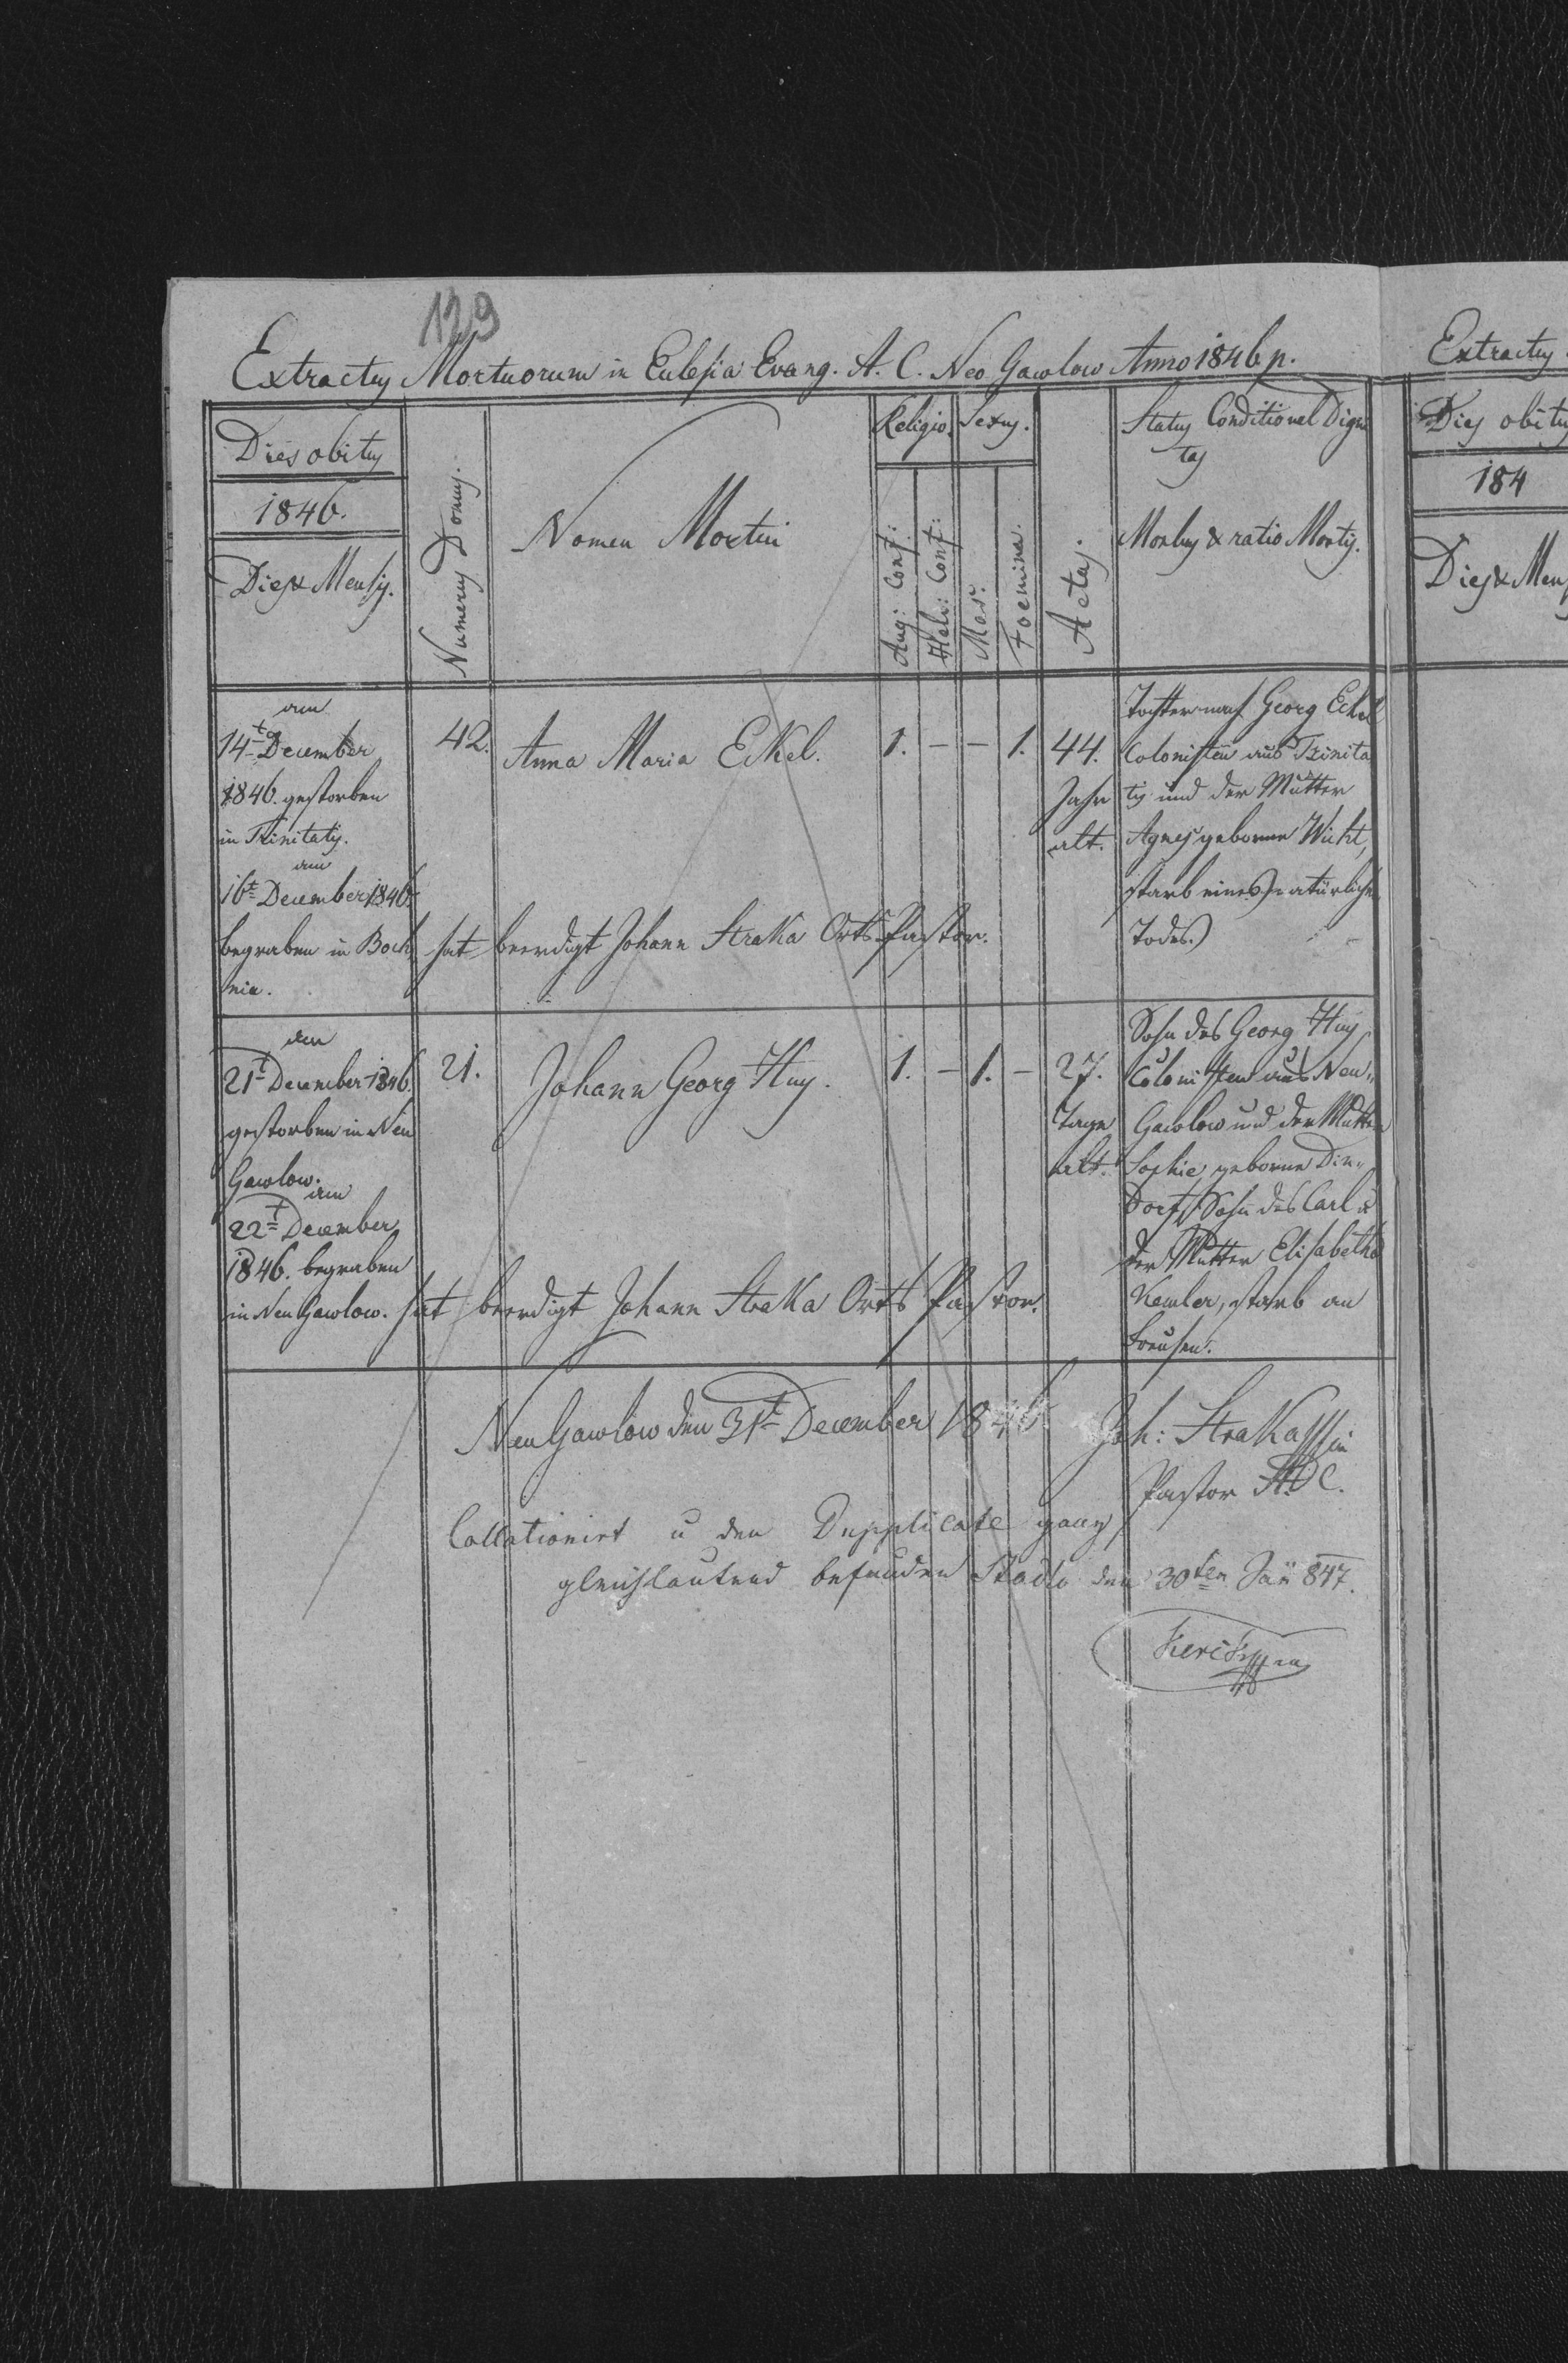 129
Extractus Mortuorum in Eclesia Evang. A. C. Neo Gawlow Anno 1846 p.
Dies obitus
1846.
Dies & Mensis.
Numerus Domus.
Nomen Mortui
Religio.
Aug: Conf:
Helv: Conf:
Sexus.
Mas.
Foemina.
Aetas.
Status Conditionel Digni
tas
Morbus & ratio Mortis.
am
14t December
1846. gestorben
in Trinitatis.
am
16t December 1846
begraben in Boch
nia.
42.
Anna Maria Eckel.
1. – – 1.
44.
Jahr
alt.
Tochter nach Georg Eckel
Colonisten aus Trinita
tis und der Mutter
Agnes geborne Wicht,
starb eines natürlichen
Todes.
hat beerdigt Johann Straka Orts Pastor.
am
21t December 1846
gestorben in Neu
Gawlow.
am
22t December
1846. begraben
in Neu Gawlow.
21.
Johann Georg Huy.
1. – 1. –
27.
Tage
alt.
Sohn des Georg Huy
Colonisten aus Neu„
Gawlow und der Mutter
Sophie geborne Din„
Dorf, Sohn des Carl u
der Mutter Elisabetha
Kemler, starb an
hat beerdigt Johann Straka Orts Pastor.
Neu Gawlow den 31t December 1846.
Joh: Straka
Pastor A. C.
Collationirt u den Dupplicate ganz
gleichlautend befunden Stadlo den 30ten Jän 847.
Extractus
Dies obitus
184
Dies & Mens